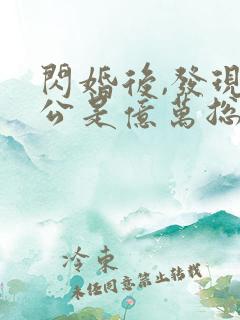 閃婚後,發現
公是億萬總
冷東
未經同意禁止轉載